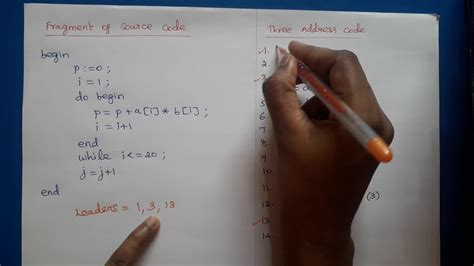 Fragment of Source Code
begin
p:=0;
i=1;
do begin
p=p+a[i]*b[i];
i=i+1
end
while i<=20;
j=j+1
end
Leaders = 1, 3, 13
Three Address Code
1.
2.
3
5
6.
7
8
9
10
11
12.
(3)
13
14